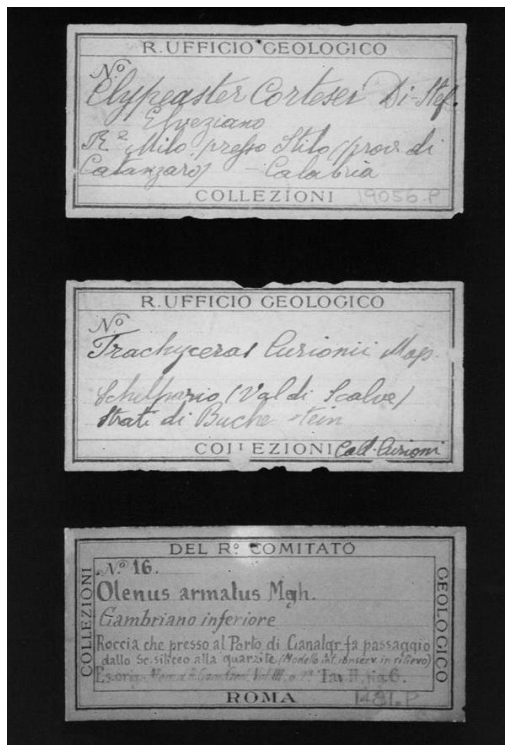 R. UFFICIO GEOLOGICO
Nº
Clypeaster Cortesei Di-Stef.
Elveziano
R.e Milo presso Stilo (prov. di
Catanzaro) - Calabria
COLLEZIONI 19056.P
R. UFFICIO GEOLOGICO
Nº
Trachyceras Curionii Mojs.
Schilpario (Val di Scalve)
Strati di Buchenstein
COLLEZIONI Coll. Curioni
DEL Rº. COMITATO
COLLEZIONI
GEOLOGICO
Nº 16.
Olenus armatus Mgh.
Cambriano inferiore
Roccia che presso al Porto di Canalgr. fa passaggio
dallo Sc. siliceo alla quarzite (Modello del conserv. in rilievo)
Es. orig. Tav. II. fig. 6.
ROMA 1481.P